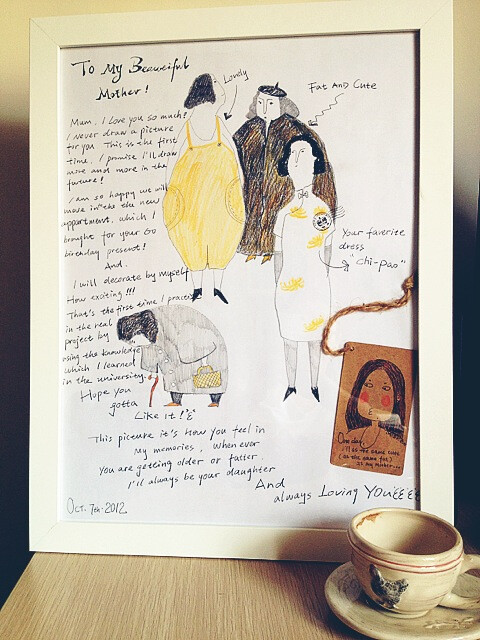 To My Beaueiful
Mother!
Mum, I love you so much!
I never draw a picture
for you. This is the first
time, I promise I'll draw
more and more in the
furture!
I am so happy we will
move in the the new
appartment, which I
brought for your 60
birthday present!
And,
I will decorate by myself
How exciting!!!
That's the first time I practise
in the real
project by
using the knowledge
which I learned
in the university.
Hope you
gotta
Like it!
This picture it's how you feel in
my memories, when ever
you are getting older or fatter.
I'll always be your daughter
And
always Loving YOU
Oct. 7th. 2012.
Lovely
Fat And Cute
Your faverite
dress
"Chi-pao"
One day,
I'll as the same cute
(as the same fat)
as my mother...